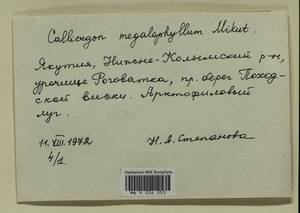 Calliergon megalophyllum Mikut.
Якутия, Нижне-Колымский р-н,
урочище Роговатка, пр. берег Поход-
ской виски. Арктофиловый
луг.
11. VIII. 1972
Н. А. Степанова
4/1.
Herbarium MW, Bryophyta